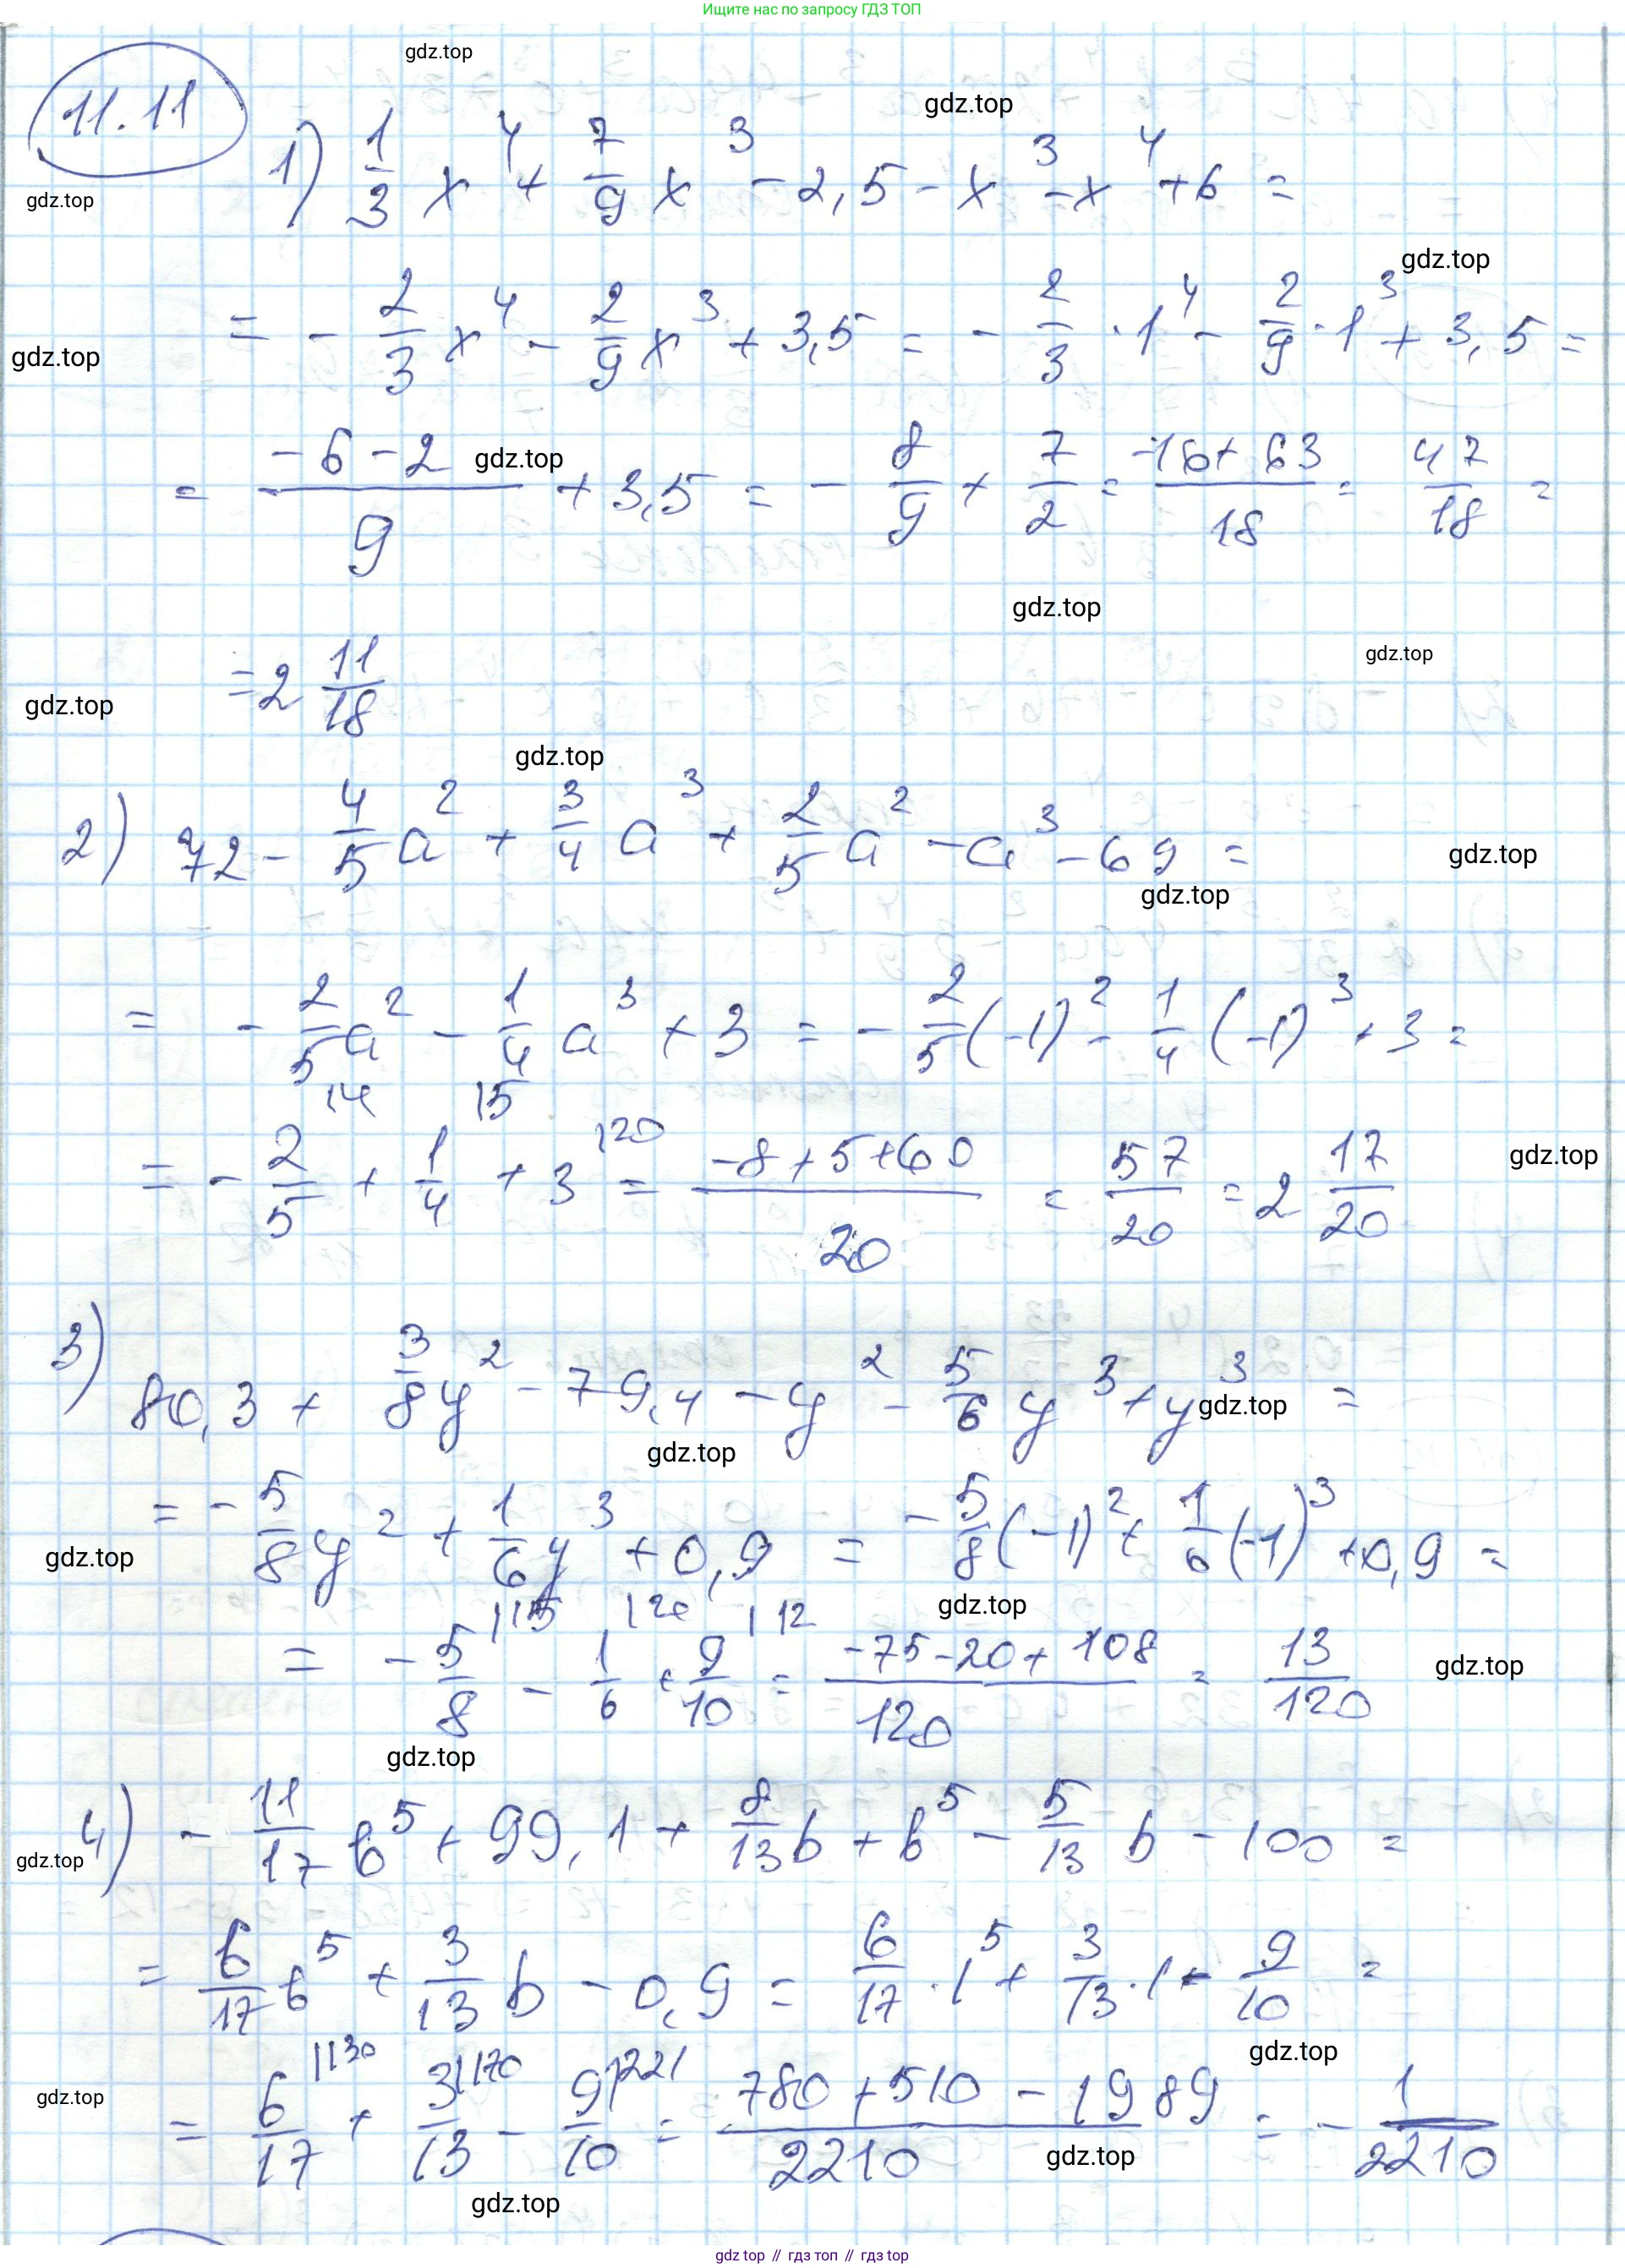 Ищите нас по запросу ГДЗ ТОП
gdz.top
11.11
gdz.top
1) 1/3 x^4 + 7/9 x^3 - 2,5 - x^3 - x^4 + 6 =
gdz.top
gdz.top
= - 2/3 x^4 - 2/9 x^3 + 3,5 = - 2/3 · 1^4 - 2/9 · 1^3 + 3,5 =
gdz.top
= (-6-2)/9 + 3,5 = - 8/9 + 7/2 = (-16+63)/18 = 47/18 =
gdz.top
gdz.top
gdz.top
= 2 11/18
gdz.top
gdz.top
2) 72 - 4/5 a^2 + 3/4 a^3 + 2/5 a^2 - a^3 - 69 =
gdz.top
gdz.top
= - 2/5 a^2 - 1/4 a^3 + 3 = - 2/5 (-1)^2 - 1/4 (-1)^3 + 3 =
= - 2/5 |4 + 1/4 |5 + 3 |20 = (-8+5+60)/20 = 57/20 = 2 17/20
gdz.top
3) 80,3 + 3/8 y^2 - 79,4 - y^2 - 5/6 y^3 + y^3 =
gdz.top
gdz.top
= - 5/8 y^2 + 1/6 y^3 + 0,9 = - 5/8 (-1)^2 + 1/6 (-1)^3 + 0,9 =
gdz.top
gdz.top
= - 5/8 |15 - 1/6 |20 + 9/10 |12 = (-75-20+108)/120 = 13/120
gdz.top
gdz.top
4) - 11/17 b^5 + 99,1 + 8/13 b + b^5 - 5/13 b - 100 =
gdz.top
= 6/17 b^5 + 3/13 b - 0,9 = 6/17 · 1^5 + 3/13 · 1 - 9/10 =
gdz.top
gdz.top
= 6/17 |130 + 3/13 |170 - 9/10 |221 = (780+510-1989)/2210 = - 1/2210
gdz.top
gdz.top
gdz top // гдз топ // гдз top